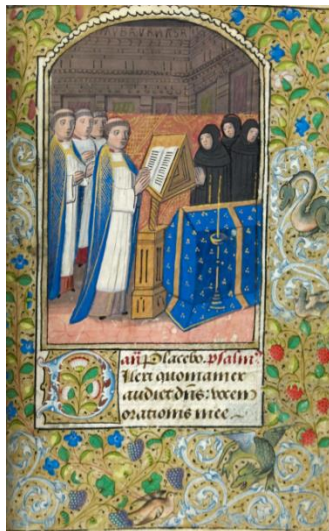 añ Placebo. psalm᷒
Dilexi quoniam ex
audiet dñs: vocem
orationis mee